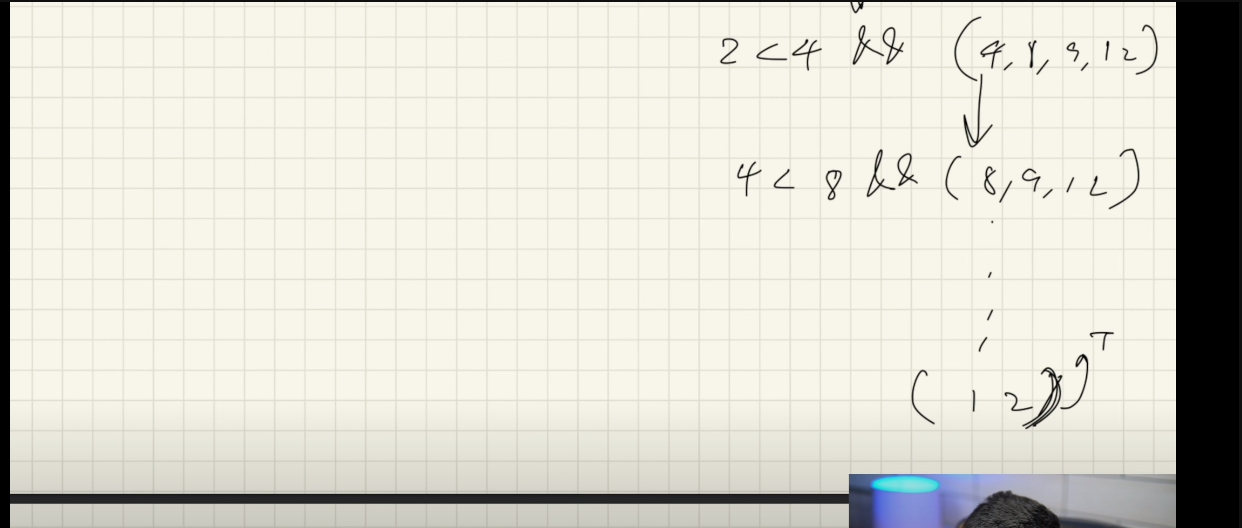 2 < 4 && (4, 8, 9, 12)
4 < 8 && (8, 9, 12)
T
(12)